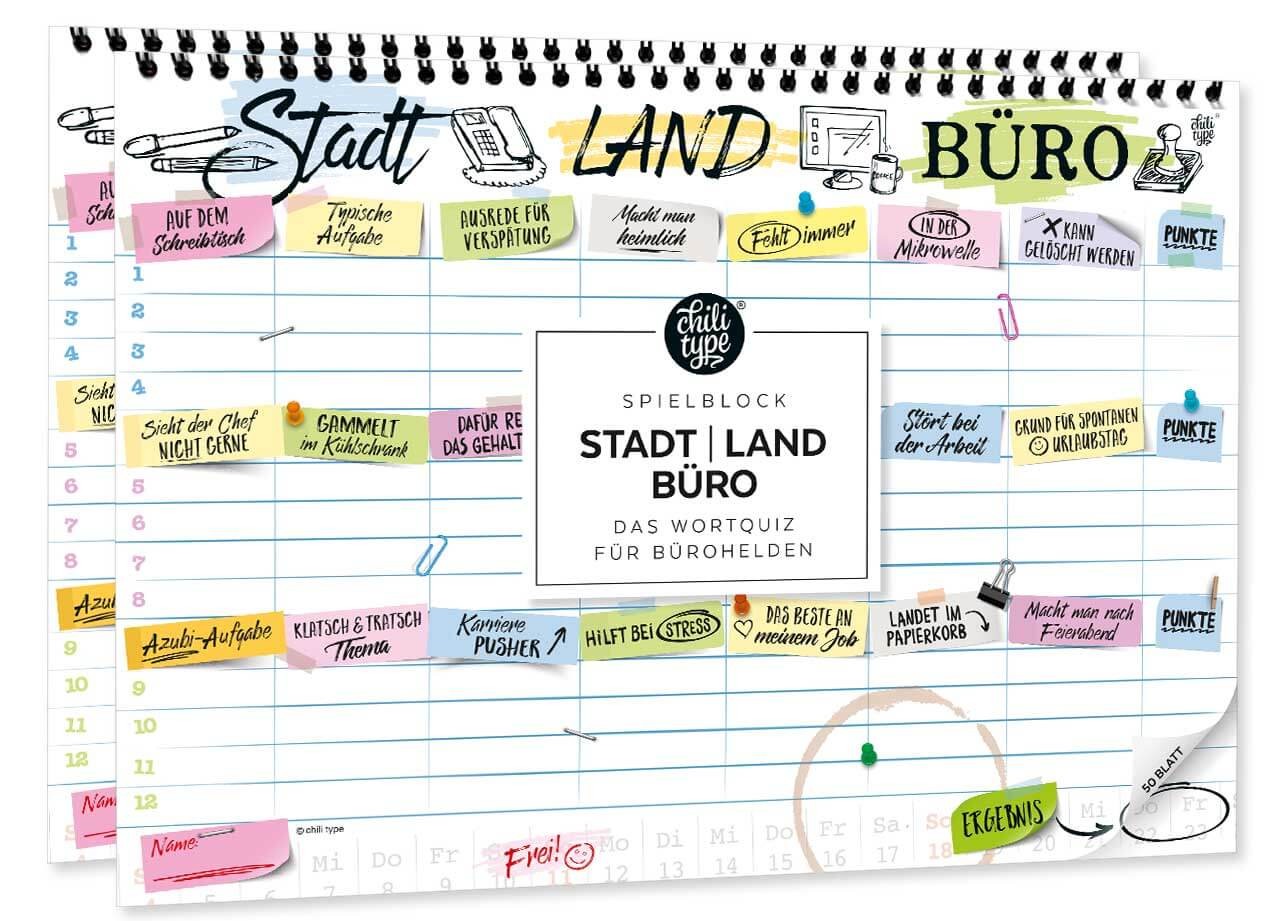 Stadt LAND BÜRO
chili type
AUF DEM
Schreibtisch
Typische
Aufgabe
AUSREDE FÜR
VERSPÄTUNG
Macht man
heimlich
Fehlt immer
IN DER
Mikrowelle
X KANN
GELÖSCHT WERDEN
PUNKTE
1
2
3
4
chili
type®
SPIELBLOCK
STADT | LAND
BÜRO
DAS WORTQUIZ
FÜR BÜROHELDEN
Sieht der Chef
NICHT GERNE
GAMMELT
im Kühlschrank
DAFÜR RE
DAS GEHALT
Stört bei
der Arbeit
GRUND FÜR SPONTANEN
URLAUBSTAG
PUNKTE
5
6
7
8
Azubi-Aufgabe
KLATSCH & TRATSCH
Thema
Karriere
PUSHER
HILFT BEI STRESS
DAS BESTE AN
meinem Job
LANDET IM
PAPIERKORB
Macht man nach
Feierabend
PUNKTE
9
10
11
12
© chili type
Name:
Frei!
ERGEBNIS
50 BLATT
Mi Do Fr Mo Di Mi Do Fr Sa. So Mi Do Fr
7 8 9 10 11 12 13 14 15 16 17 18 20 21 22 23
1
2
3
4
5
6
7
8
9
10
11
12